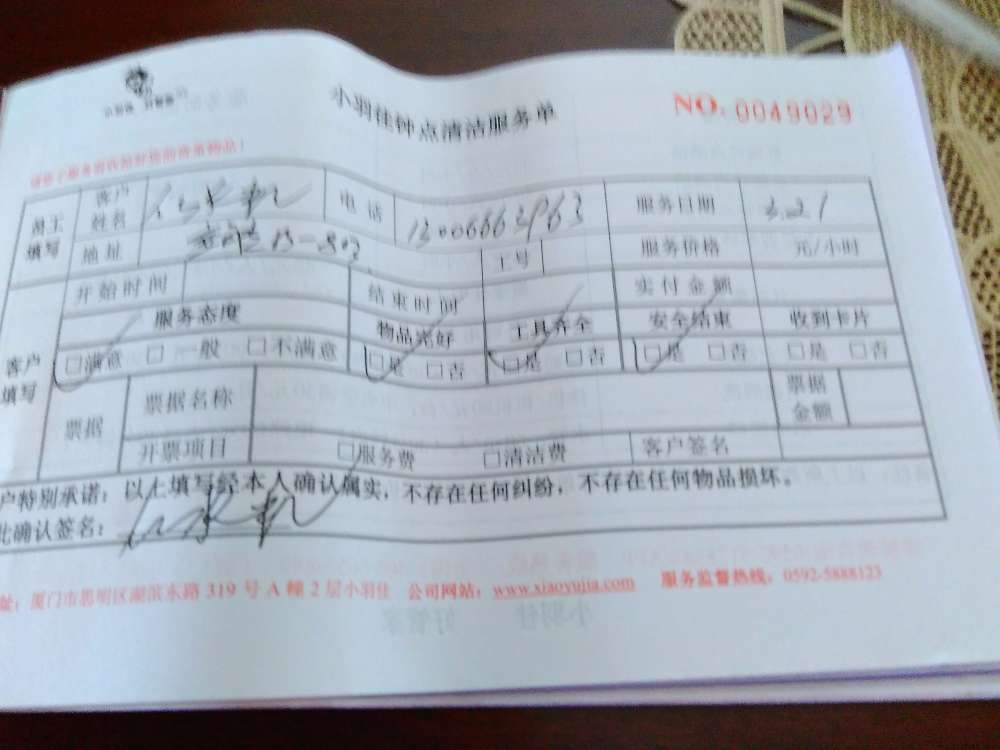 小羽佳钟点清洁服务单
NO. 0049029
员工填写 客户姓名 电话 13006663963 服务日期 3.21
地址 工号 服务价格 元/小时
开始时间 结束时间 实付金额
服务态度 物品完好 工具齐全 安全结束 收到卡片
客户填写 □满意 □一般 □不满意 □是 □否 □是 □否 □是 □否 □是 □否
票据 票据名称 票据金额
开票项目 □服务费 □清洁费 客户签名
户特别承诺：以上填写经本人确认属实，不存在任何纠纷，不存在任何物品损坏。
此确认签名：
址：厦门市思明区湖滨东路 319 号 A 幢 2 层小羽佳 公司网站：www.xiaoyujia.com 服务监督热线：0592-5888123